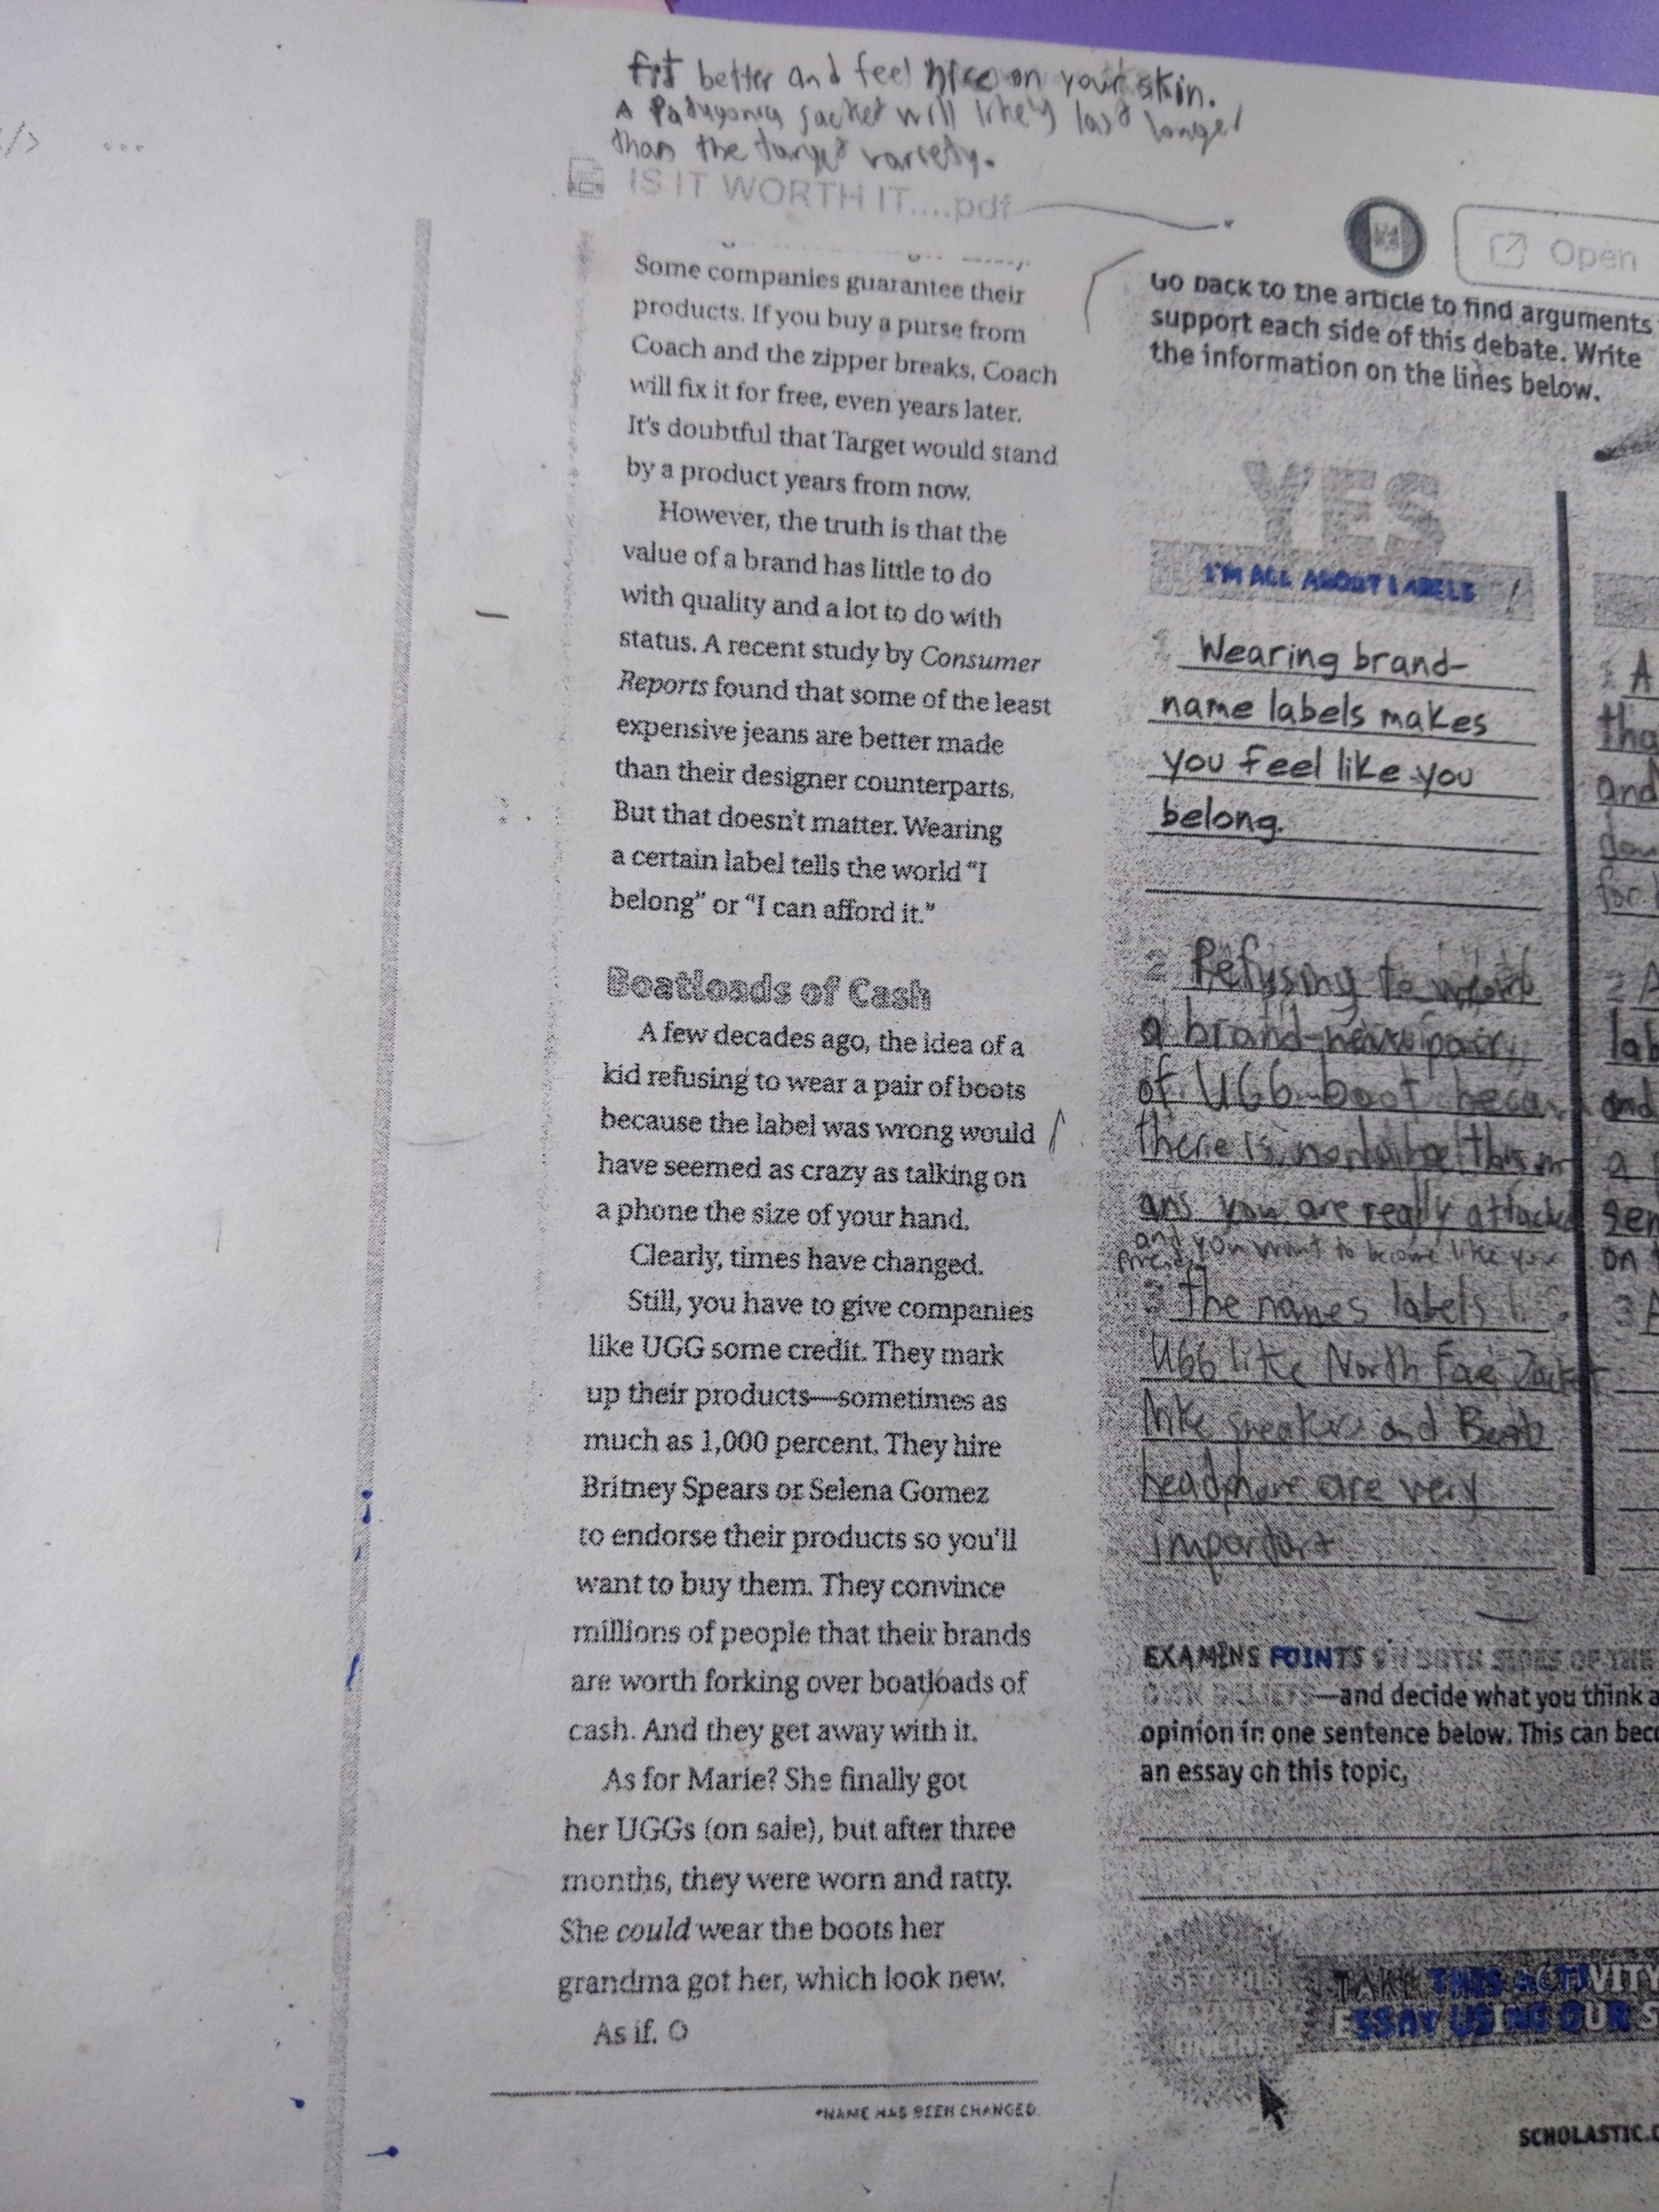 fit better and feel nice on your skin.
A Patagonia jacket will likely last longer
than the target variety.
IS IT WORTH IT....pdf
Open
Some companies guarantee their
products. If you buy a purse from
Coach and the zipper breaks, Coach
will fix it for free, even years later.
It's doubtful that Target would stand
by a product years from now.
However, the truth is that the
value of a brand has little to do
with quality and a lot to do with
status. A recent study by Consumer
Reports found that some of the least
expensive jeans are better made
than their designer counterparts.
But that doesn't matter. Wearing
a certain label tells the world “I
belong” or “I can afford it.”
Boatloads of Cash
A few decades ago, the idea of a
kid refusing to wear a pair of boots
because the label was wrong would
have seemed as crazy as talking on
a phone the size of your hand.
Clearly, times have changed.
Still, you have to give companies
like UGG some credit. They mark
up their products—sometimes as
much as 1,000 percent. They hire
Britney Spears or Selena Gomez
to endorse their products so you'll
want to buy them. They convince
millions of people that their brands
are worth forking over boatloads of
cash. And they get away with it.
As for Marie? She finally got
her UGGs (on sale), but after three
months, they were worn and ratty.
She could wear the boots her
grandma got her, which look new.
As if.
*NAME HAS BEEN CHANGED.
Go back to the article to find arguments
support each side of this debate. Write
the information on the lines below.
YES
I'M ALL ABOUT LABELS
1 Wearing brand-
name labels makes
you feel like you
belong.
2 Refusing to
a brand-new pair
of UGG boot
there is
ans you are really
and you want to become like your
3 The names labels
UGG like North Face Jacket
Nike sneakers and
are very
important
1 A
and
for
2 A
lab
and
a
on
3 A
EXAMINE POINTS ON BOTH SIDES OF THE
OWN BELIEFS—and decide what you think a
opinion in one sentence below. This can bec
an essay on this topic.
TAKE THIS ACTIVITY
ESSAY USING OUR S
ONLINE
SCHOLASTIC.C